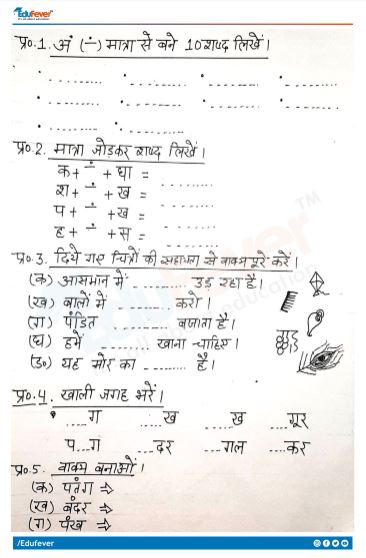 EduFever
प्र०.1. अं (ं) मात्रा से बने 10 शब्द लिखें।
प्र०.2. मात्रा जोड़कर शब्द लिखें।
क + ं + घा = ........
श + ं + ख = ........
प + ं + ख = ........
ह + ं + स = ........
प्र०.3. दिये गए चित्रों की सहायता से वाक्य पूरे करें।
(क) आसमान में ......... उड़ रहा है।
(ख) बालों में ......... करो।
(ग) पंडित ......... बजाता है।
(घ) हमें ......... खाना चाहिए।
(ङ) यह मोर का ......... है।
प्र०.4. खाली जगह भरें।
....ग ....ख ....ख ....गूर
प....ग ....दर ....गल ....कर
प्र०.5. वाक्य बनाओं।
(क) पतंग ⇒
(ख) बंदर ⇒
(ग) पंख ⇒
/Edufever